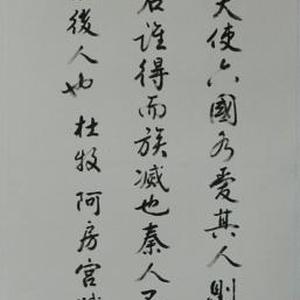 使六國各愛其人則
誰得而族滅也秦人
後人也 杜牧阿房宮